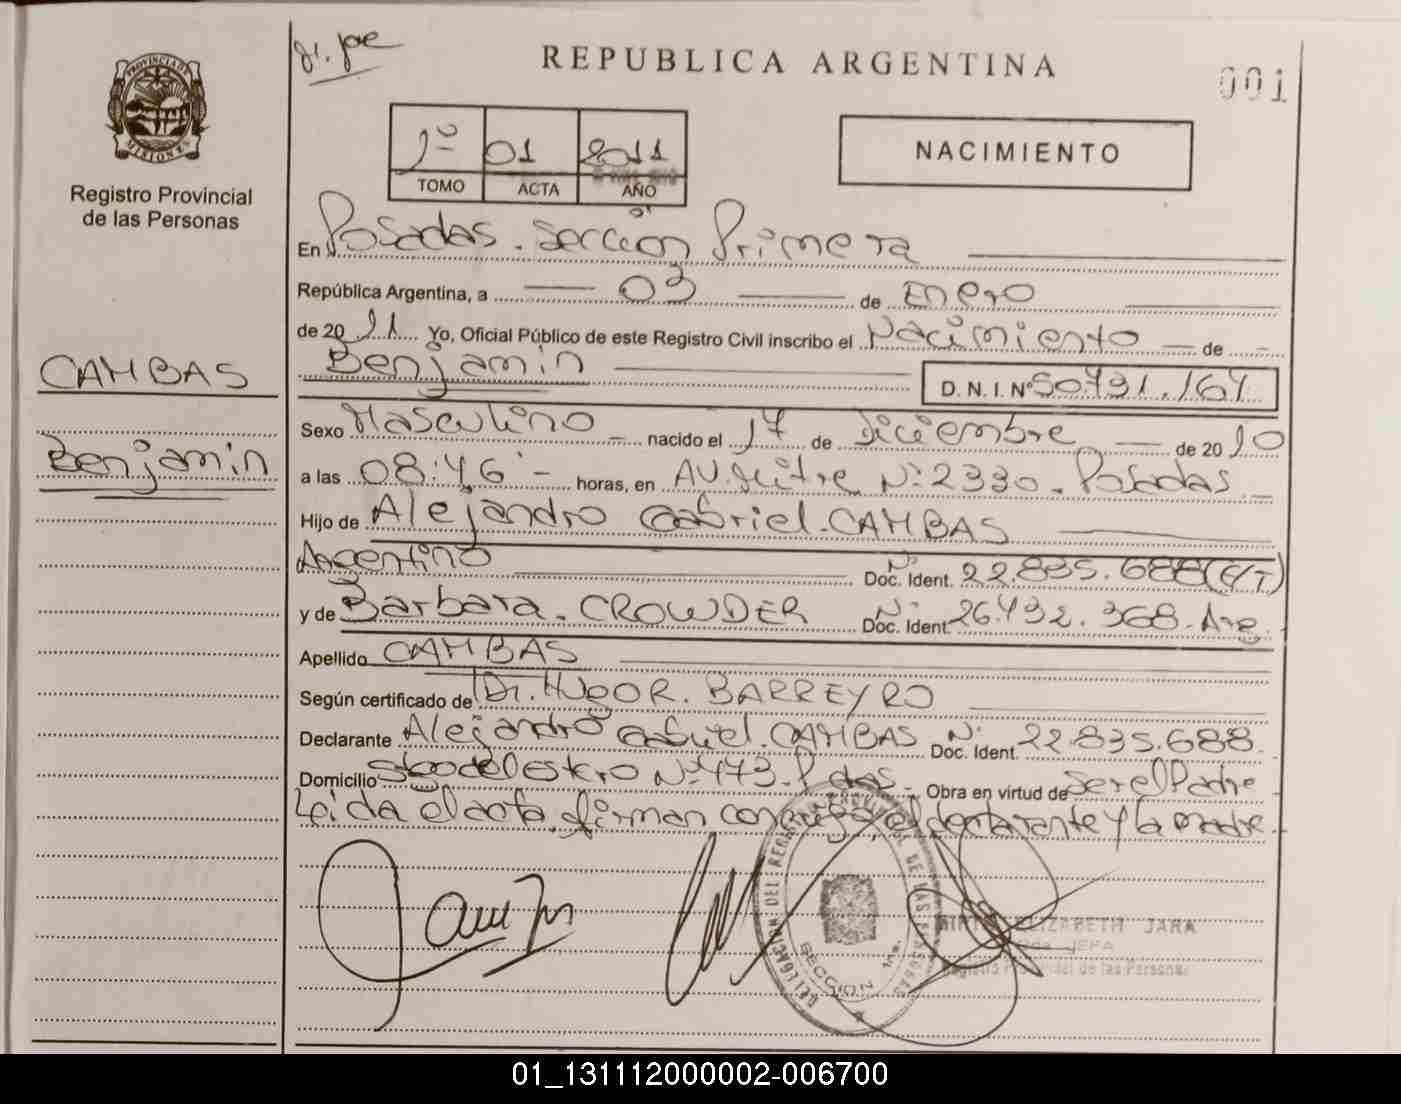 REPUBLICA ARGENTINA
001
PROVINCIA DE MISIONES
Registro Provincial
de las Personas
1º 01 2011
TOMO ACTA AÑO
NACIMIENTO
En Posadas. Sección Primera
República Argentina, a 03 de Enero
de 2011 Yo, Oficial Público de este Registro Civil inscribo el Nacimiento de
CAMBAS
Benjamin
Benjamin D. N. I. Nº 50.791.167
Sexo Masculino nacido el 17 de Diciembre de 2010
a las 08:46 horas, en AV. Mitre Nº 2330. Posadas
Hijo de Alejandro Gabriel. CAMBAS
Argentino Doc. Ident. Nº 22.835.688 (C/T)
y de Barbara. CROWDER Doc. Ident. Nº 26.432.368. Arg.
Apellido CAMBAS
Según certificado de Dr. Hugo R. BARREYRO
Declarante Alejandro Gabriel. CAMBAS Doc. Ident. Nº 22.835.688.
Domicilio Sgo del Estero Nº 473. Pdas Obra en virtud de Ser el Padre
Leida el acta, firman conmigo, el declarante y la madre.
DELEGACION DEL REGISTRO PROVINCIAL DE LAS PERSONAS
SECCION 1a.
ELIZABETH JARA
JEFA
Registro Provincial de las Personas
01_131112000002-006700